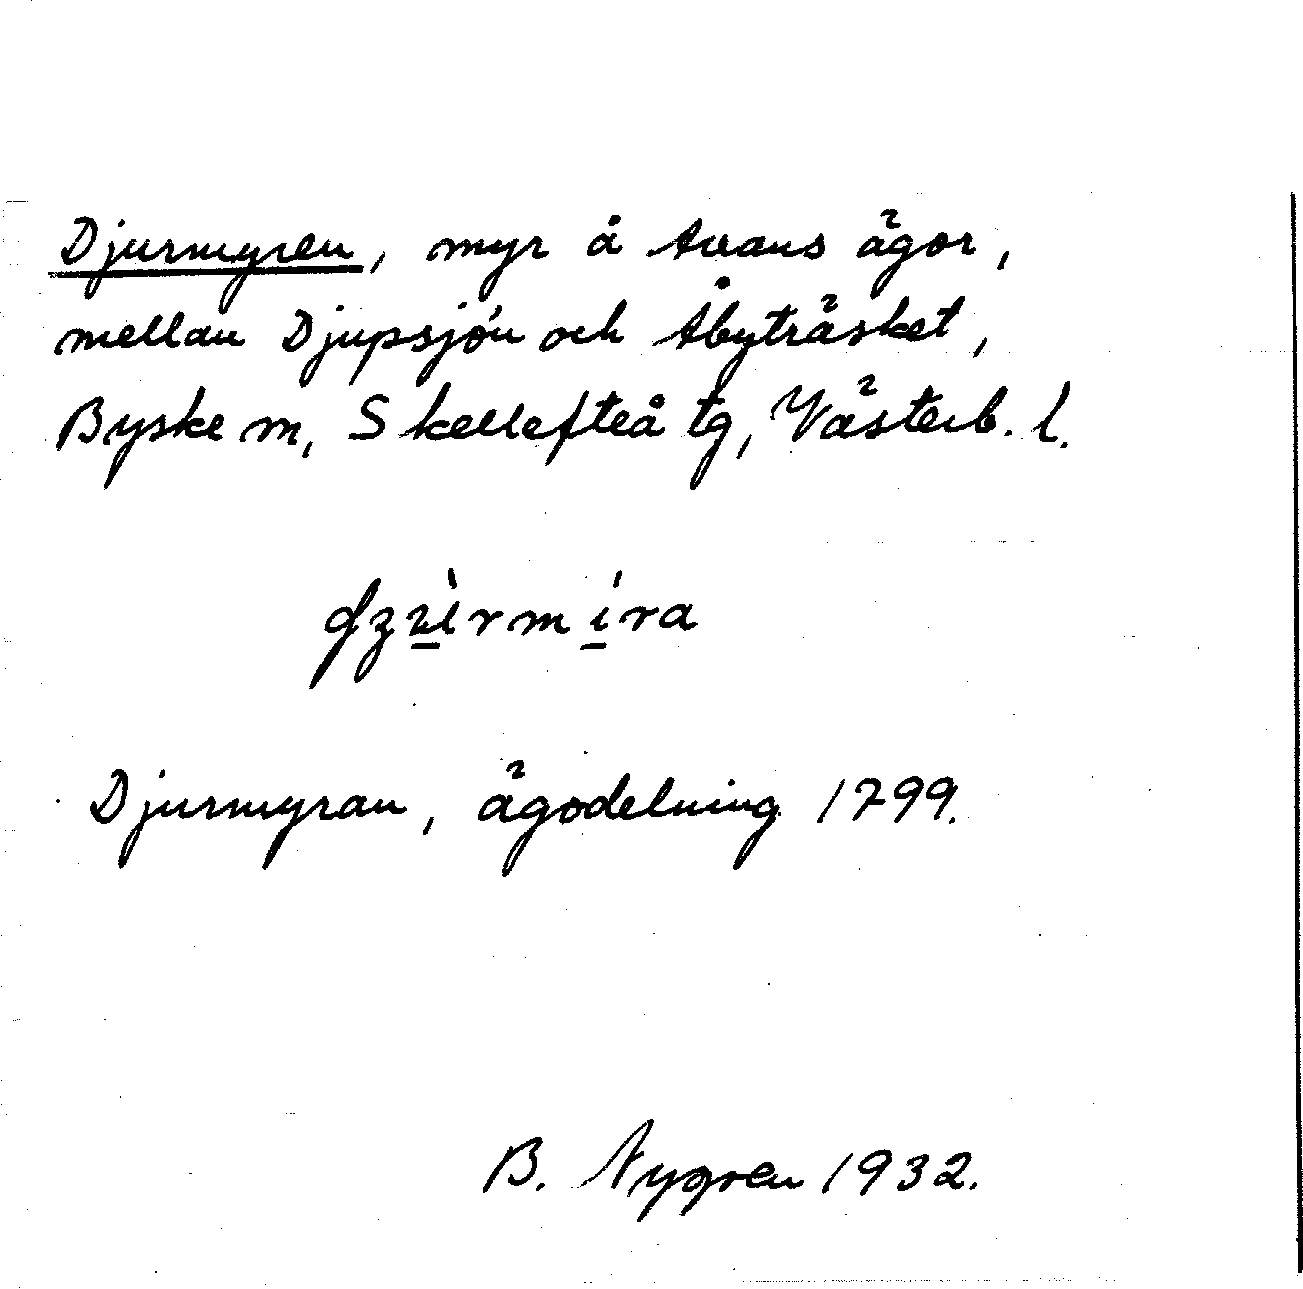 Djurmyren, myr å Avans ägor,
mellan Djupsjön och Åbyträsket,
Byske sn, Skellefteå tg, Västerb. l.
Djurmyran, ägodelning 1799.
B. Nygren 1932.